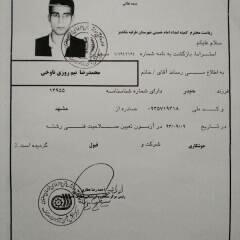 بسمه تعالی
ریاست محترم کمیته امداد امام خمینی شهرستان
سلام علیکم
احتراما، بازگشت به نامه شماره
به اطلاع می رساند آقای / خانم محمدرضا نیم روزی ناوخی
فرزند حیدر دارای شماره شناسنامه ۱۳۹۵۵
و کد ملی ۰۹۳۵۷۱۹۳۱۸ صادره از مشهد
در تاریخ ۹۳/۰۹/۰۹ در آزمون تعیین صلاحیت فنی رشته
جوشکاری شرکت و قبول گردیده است.